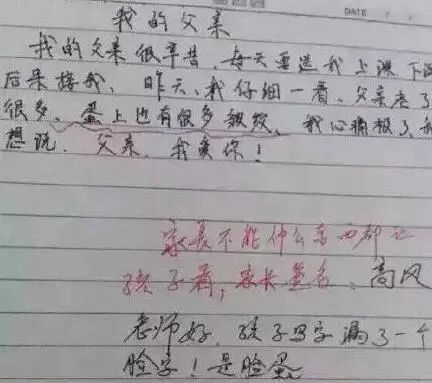 DATE
我的父亲
我的父亲很辛苦,每天要送我上课,下课
后来接我,昨天,我仔细一看,父亲老了
很多,蛋上也有很多皱纹,我心痛极了,我
想说,父亲,我爱你!
家长不能什么东西都让
孩子看,家长签名、高风
老师好,孩子写字漏了一个
脸字!是脸蛋